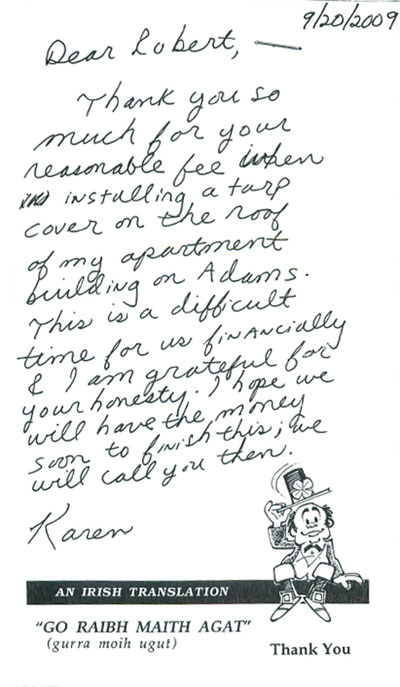 9/20/2009
Dear Lubert, —
Thank you so
much for your
reasonable fee when
installing a tarp
cover on the roof
of my apartment
building on Adams.
This is a difficult
time for us financially
& I am grateful for
your honesty. I hope we
will have the money
soon to finish this; we
will call you then.
Karen
AN IRISH TRANSLATION
"GO RAIBH MAITH AGAT"
(gurra moih ugut)
Thank You